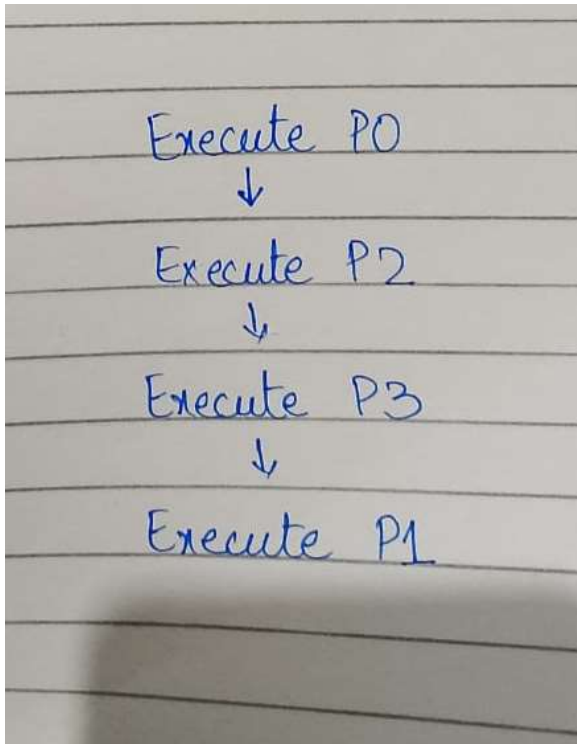 Execute P0
↓
Execute P2
↓
Execute P3
↓
Execute P1